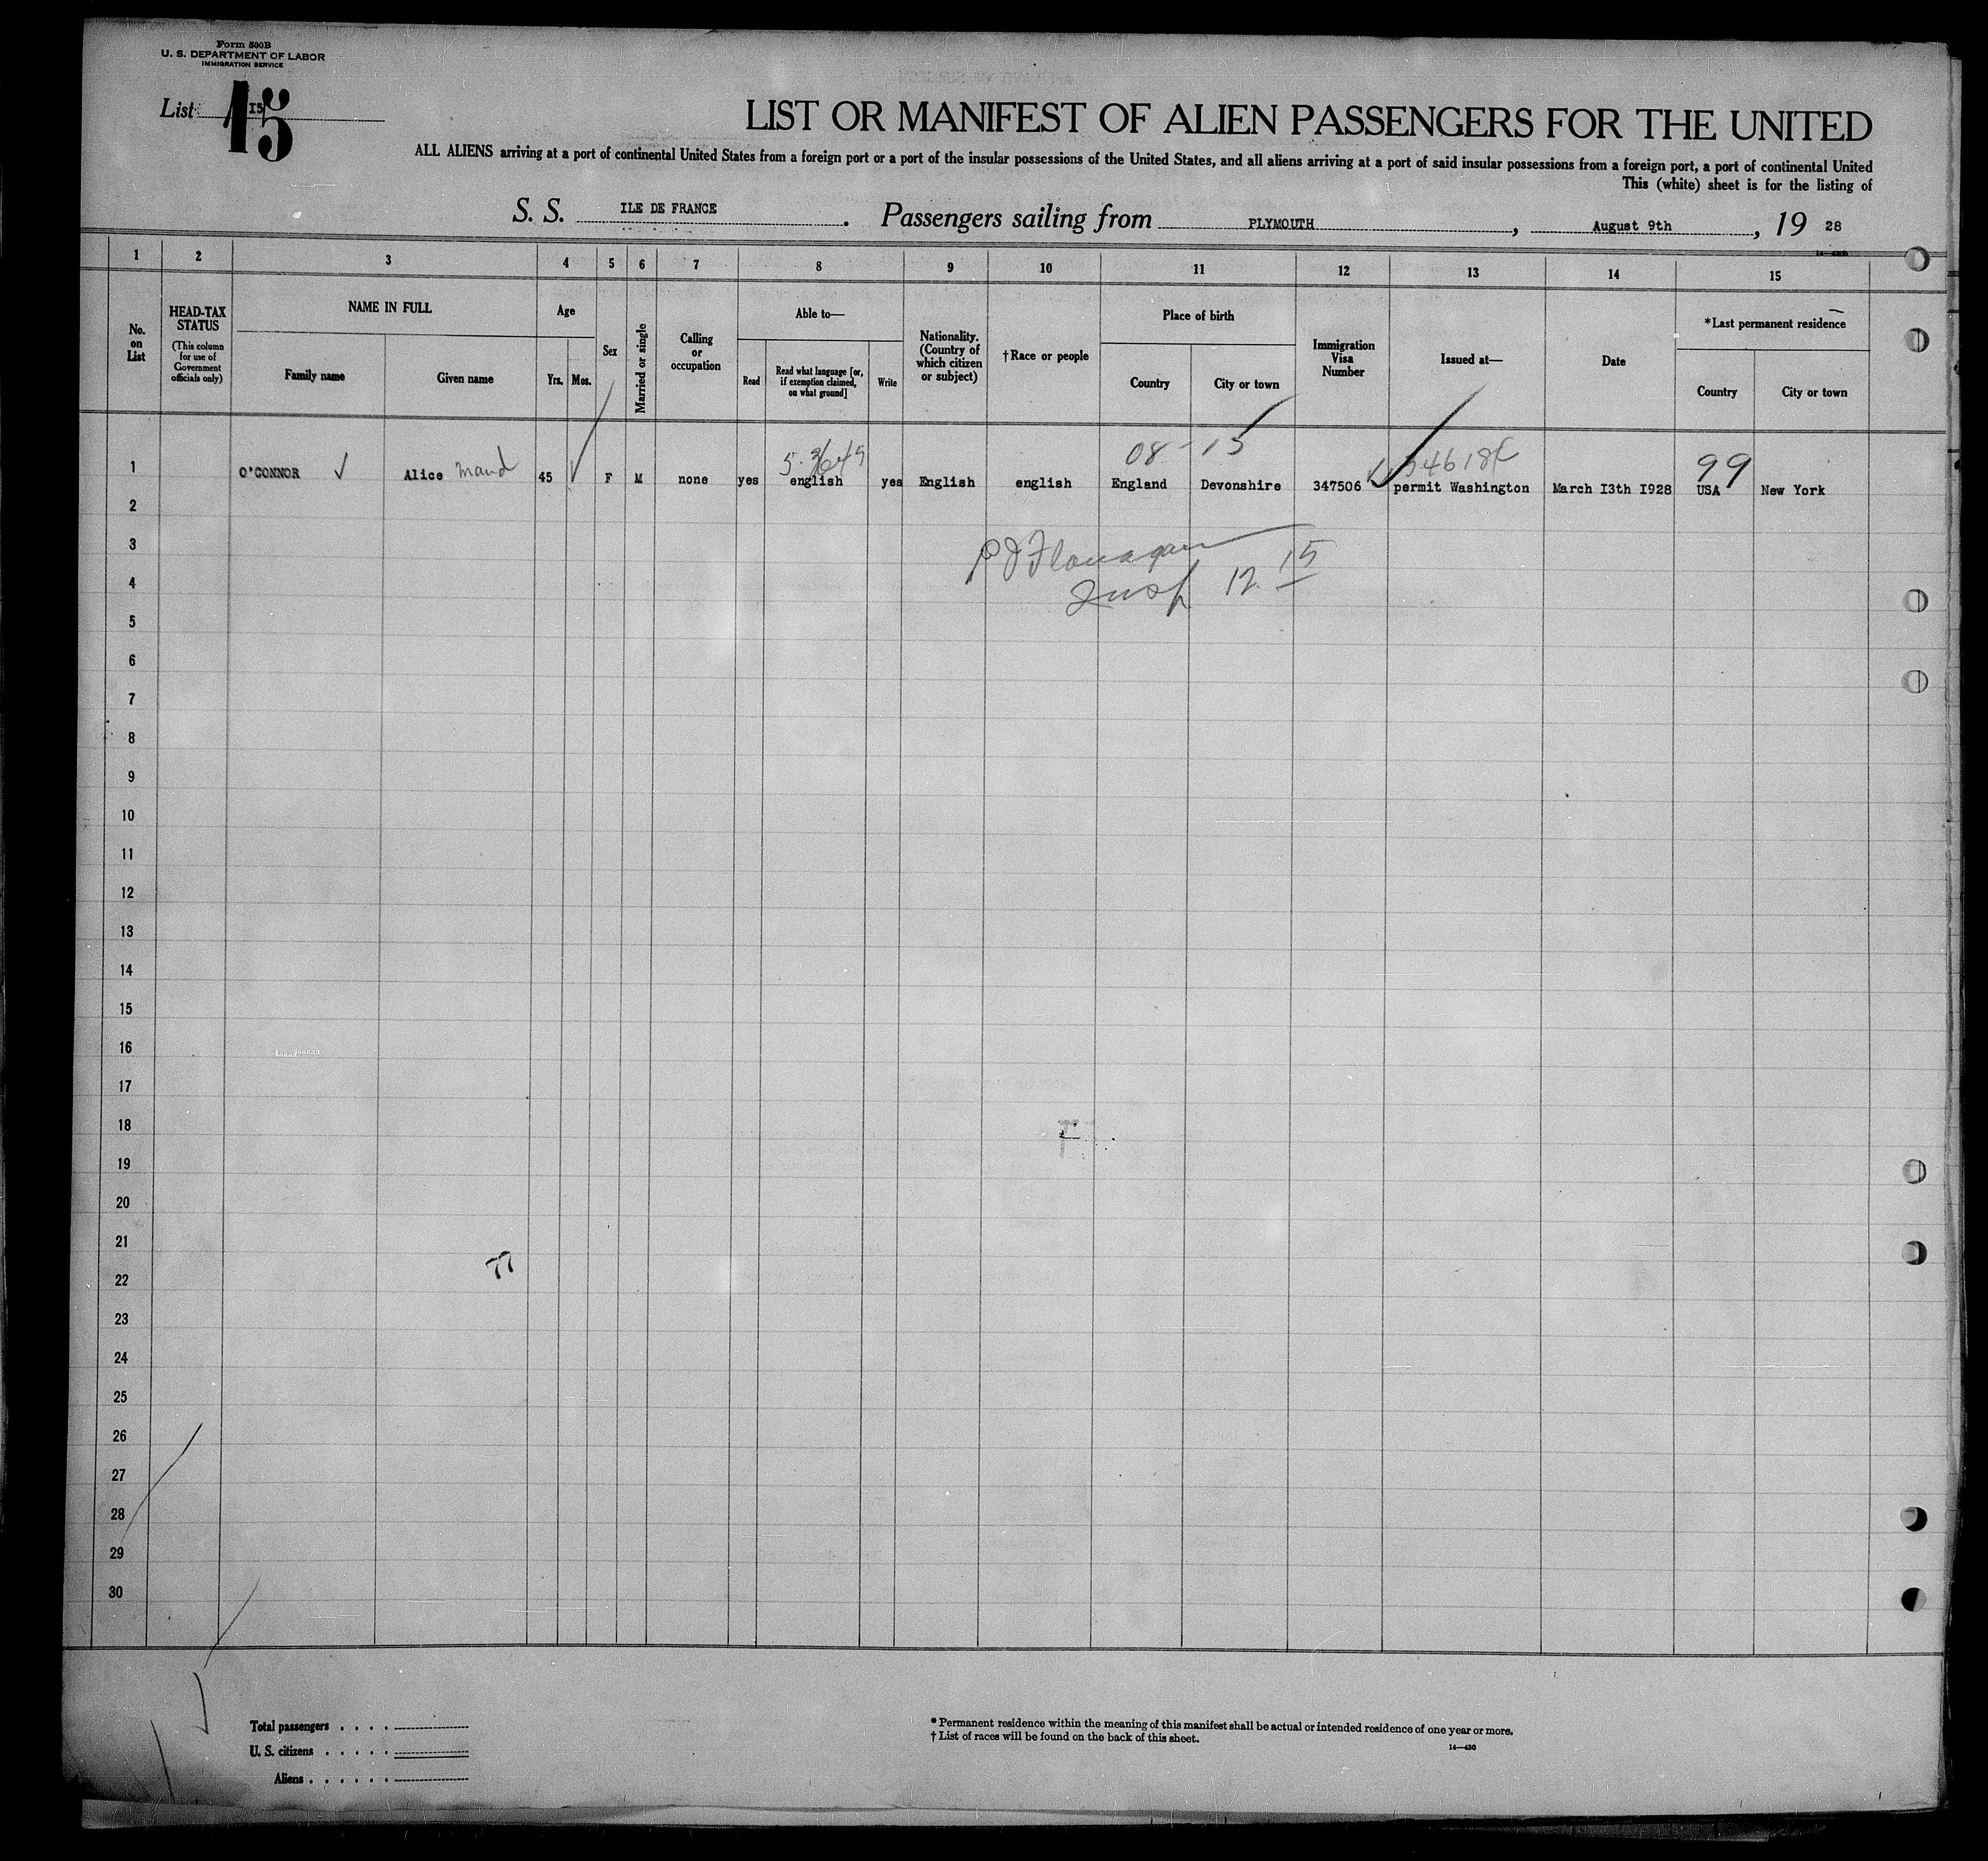 Form 500B
U. S. DEPARTMENT OF LABOR
IMMIGRATION SERVICE
List I5
15
LIST OR MANIFEST OF ALIEN PASSENGERS FOR THE UNITED
ALL ALIENS arriving at a port of continental United States from a foreign port or a port of the insular possessions of the United States, and all aliens arriving at a port of said insular possessions from a foreign port, a port of continental United
This (white) sheet is for the listing of
S. S. ILE DE FRANCE. Passengers sailing from PLYMOUTH, August 9th, 19 28
1 2 3 4 5 6 7 8 9 10 11 12 13 14 15
No. on List
HEAD-TAX STATUS
(This column for use of Government officials only)
NAME IN FULL
Family name
Given name
Age
Yrs.
Mos.
Sex
Married or single
Calling or occupation
Able to—
Read
Read what language [or, if exemption claimed, on what ground]
Write
Nationality. (Country of which citizen or subject)
†Race or people
Place of birth
Country
City or town
Immigration Visa Number
Issued at—
Date
*Last permanent residence
Country
City or town
08-15
99
1 O'CONNOR ✓ Alice Maud 45 F M none yes english yes English english England Devonshire 347506 permit Washington March I3th I928 USA New York
2
3
P J Flanagan
4
Insp. 12 15
5
6
7
8
9
10
11
12
13
14
15
16
17
18
19
20
21
22
23
24
25
26
27
28
29
30
Total passengers
U. S. citizens
Aliens
* Permanent residence within the meaning of this manifest shall be actual or intended residence of one year or more.
† List of races will be found on the back of this sheet.
14—430